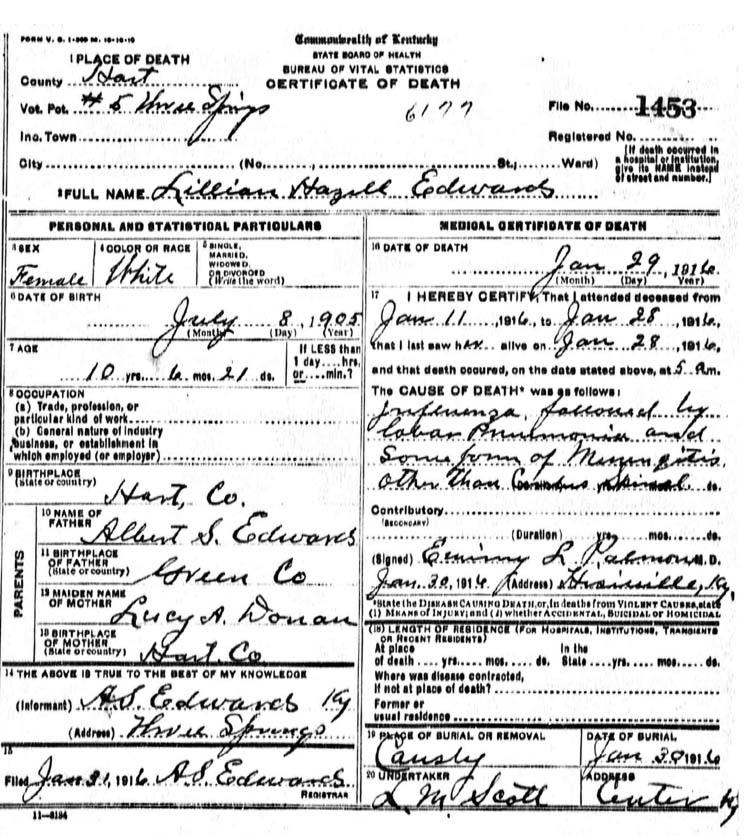 FORM V. S. 1-500 M. 10-16-10
Commonwealth of Kentucky
STATE BOARD OF HEALTH
BUREAU OF VITAL STATISTICS
CERTIFICATE OF DEATH
1 PLACE OF DEATH
County Hart
Vot. Pct. # 5 Three Springs
6177
File No. 1453
Inc. Town
Registered No.
City (No. St.; Ward)
[If death occurred in a hospital or institution, give its NAME instead of street and number.]
2 FULL NAME Lillian Hazell Edwards
PERSONAL AND STATISTICAL PARTICULARS
3 SEX
Female
4 COLOR OR RACE
White
5 SINGLE,
MARRIED,
WIDOWED,
OR DIVORCED
(Write the word)
6 DATE OF BIRTH
July 8, 1905
(Month) (Day) (Year)
7 AGE
10 yrs. 6 mos. 21 ds.
If LESS than
1 day....hrs.
or....min.?
8 OCCUPATION
(a) Trade, profession, or
particular kind of work
(b) General nature of industry
business, or establishment in
which employed (or employer)
9 BIRTHPLACE
(State or country)
Hart, Co.
PARENTS
10 NAME OF
FATHER
Albert S. Edwards
11 BIRTHPLACE
OF FATHER
(State or country)
Green Co
12 MAIDEN NAME
OF MOTHER
Lucy A. Donan
13 BIRTHPLACE
OF MOTHER
(State or country)
Hart. Co
14 THE ABOVE IS TRUE TO THE BEST OF MY KNOWLEDGE
(Informant) A.S. Edwards Ky
(Address) Three Springs
15
Filed Jan 31, 1916 A S. Edwards
REGISTRAR
11—8184
MEDICAL CERTIFICATE OF DEATH
16 DATE OF DEATH
Jan 29, 1916
(Month) (Day) (Year)
17 I HEREBY CERTIFY, That I attended deceased from
Jan 11, 1916, to Jan 28, 1916,
that I last saw her alive on Jan 28, 1916,
and that death occured, on the date stated above, at 5 am.
The CAUSE OF DEATH* was as follows:
Influenza, followed by
lobar Pneumonia and
Some form of Meningitis
other than spinal ds.
Contributory
(SECONDARY)
(Duration) yrs. mos. ds.
(Signed) L. M.D.
Jan. 30, 1916 (Address) Ky.
*State the DISEASE CAUSING DEATH, or, in deaths from VIOLENT CAUSES, state
(1) MEANS OF INJURY; and (2) whether ACCIDENTAL, SUICIDAL or HOMICIDAL
(18) LENGTH OF RESIDENCE (FOR HOSPITALS, INSTITUTIONS, TRANSIENTS
OR RECENT RESIDENTS)
At place In the
of death yrs. mos. ds. State yrs. mos. ds.
Where was disease contracted,
if not at place of death?
Former or
usual residence
19 PLACE OF BURIAL OR REMOVAL
Causby
DATE OF BURIAL
Jan 30 1916
20 UNDERTAKER
L. M Scott
ADDRESS
Center Ky